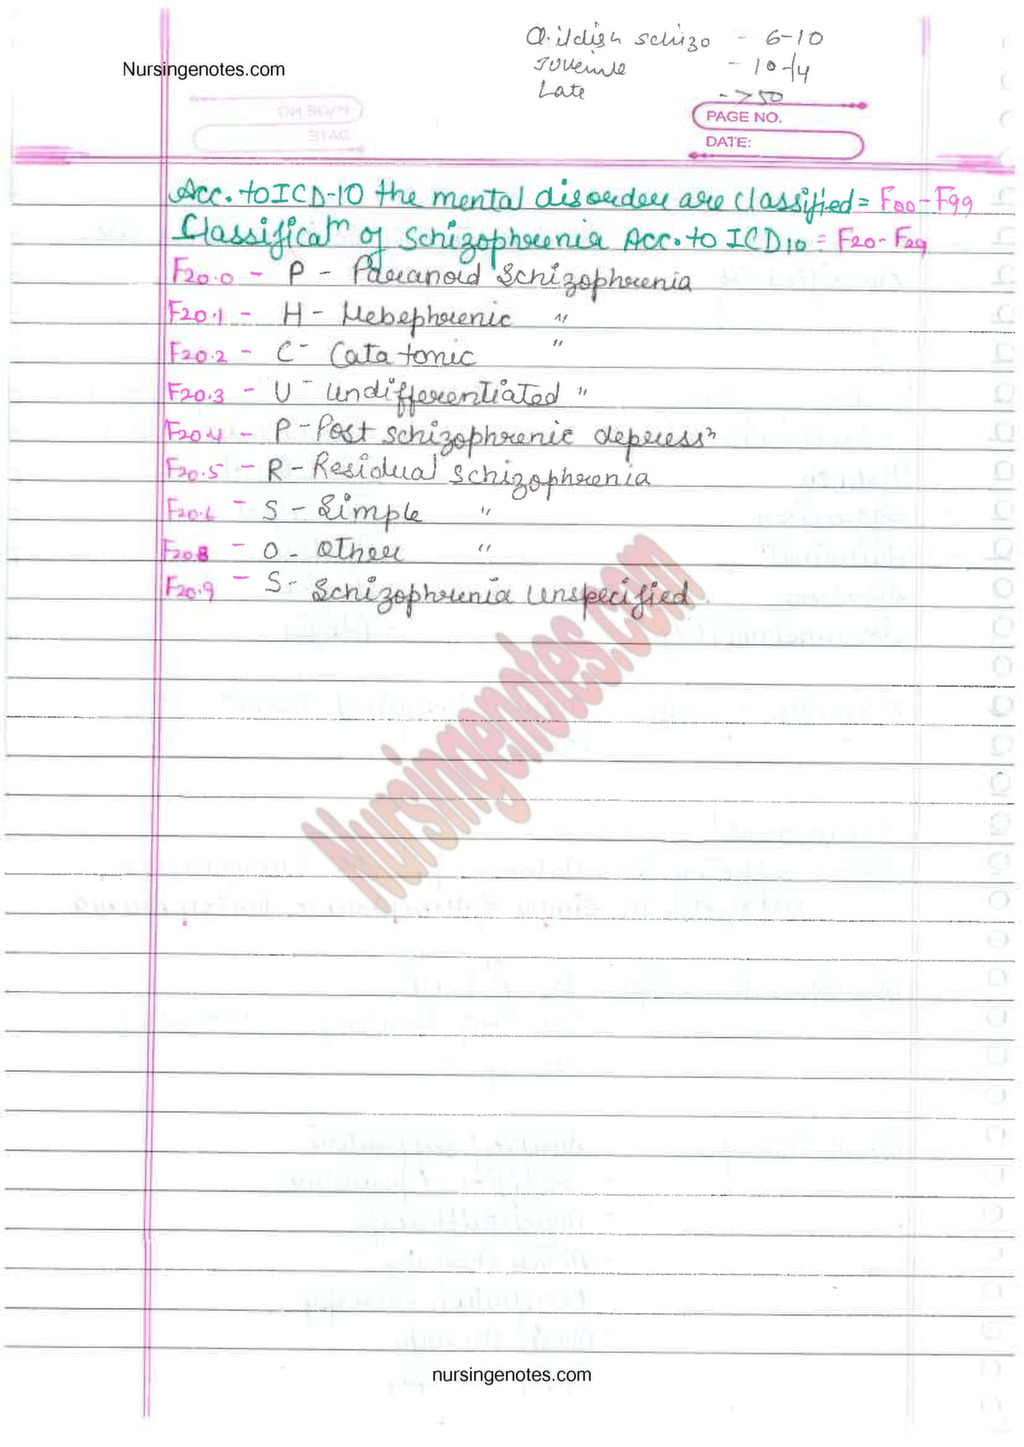 Childish schizo - 6-10
Juvenile - 10-14
Late - >50
Nursingenotes.com
PAGE NO.
DATE:
Acc. to ICD-10 the mental disorder are classified = F00-F99
Classificatn of schizophrenia Acc. to ICD10 = F20-F29
F20.0 - P - Paranoid Schizophrenia
F20.1 - H - Hebephrenic "
F20.2 - C - Catatonic "
F20.3 - U - Undifferentiated "
F20.4 - P - Post schizophrenic depressn
F20.5 - R - Residual schizophrenia
F20.6 - S - Simple "
F20.8 - O - Other "
F20.9 - S - Schizophrenia Unspecified.
Nursingenotes.com
nursingenotes.com